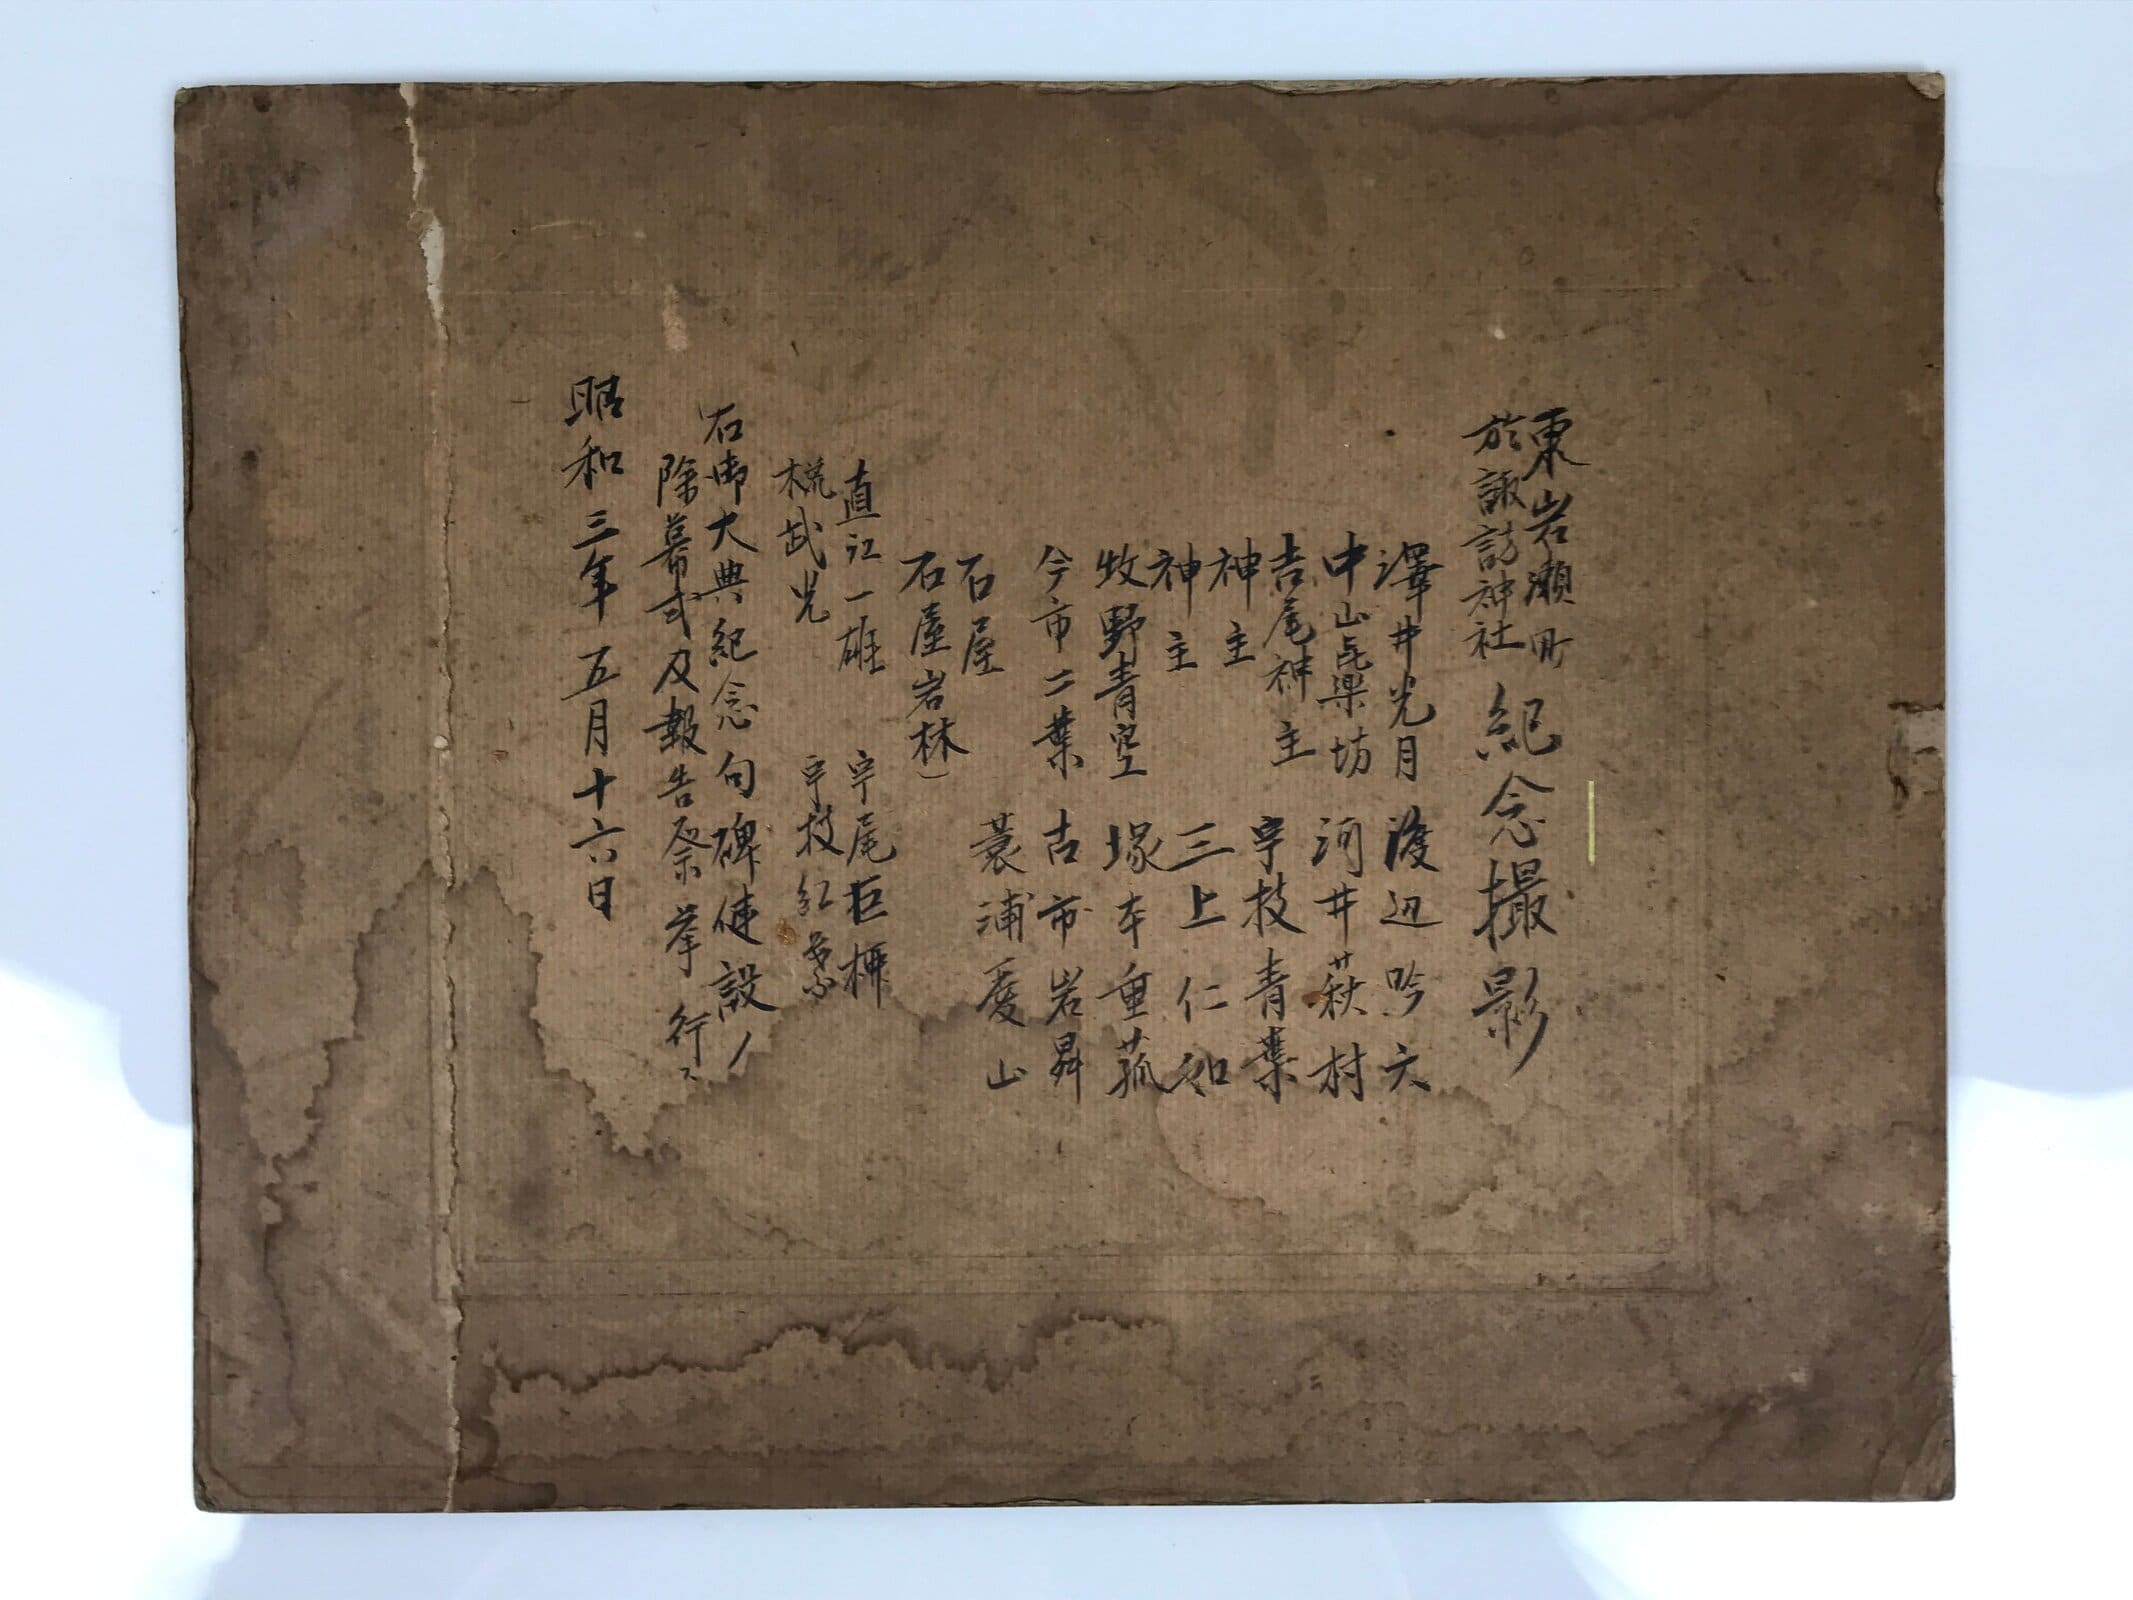 東岩瀬町
於諏訪神社
紀念撮影
澤井光月 渡辺吟六
中山乢楽坊 河井萩村
吉尾神主 宇枝青葉
神主
神主 三上仁和
牧野青空 塚本重菰
今市二葉 古市岩昇
石屋 蓑浦愛山
石屋岩林)
直江一雄 宇尾巨
武光 宇枝紅
右御大典紀念句碑建設ノ
除幕式及報告祭挙行
昭和三年五月十六日